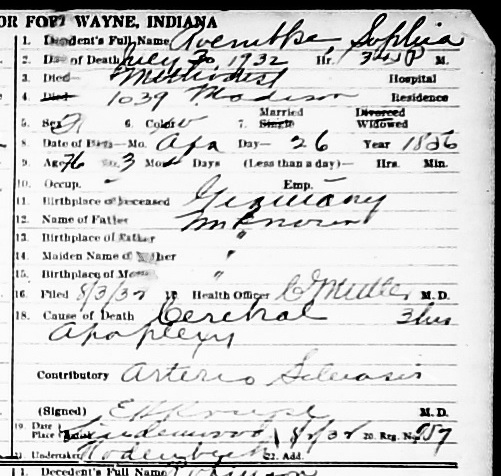 OR FORT WAYNE, INDIANA
1. Decedent's Full Name Avenitke, Sophia
2. Date of Death July 30, 1932 Hr. 3 P M.
3. Died— Methodist Hospital
4. Died— 1039 Madison Residence
5. Sex F 6. Color W 7. Married Single Divorced Widowed
8. Date of Birth—Mo. Apr Day— 26 Year 1856
9. Age 76 Yrs. 3 Mos. Days (Less than a day)— Hrs. Min.
10. Occup. Emp.
11. Birthplace of Deceased Germany
12. Name of Father Unknown
13. Birthplace of Father "
14. Maiden Name of Mother "
15. Birthplace of Mother "
16. Filed 8/3/32 17. Health Officer C Muller M. D.
18. Cause of Death Cerebral 3 hrs
Apoplexy
Contributory Arterio Sclerosis
(Signed) E H Kruse M. D.
19. Date Place Lindenwood 8/2/32 20. Reg. No. 957
21. Undertaker 22. Add.
1. Decedent's Full Name